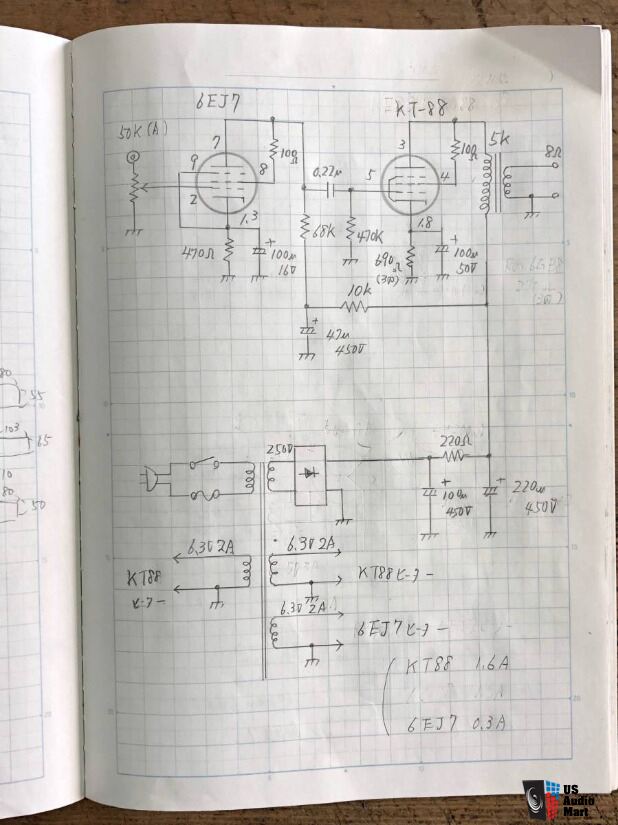 6EJ7
KT-88
50K(A)
7
9
8
2
1.3
10Ω
0.22μ
3
5
4
1.8
10Ω
5k
8Ω
470Ω
+
100μ
16V
68k
470k
690
Ω
(3W)
+
100μ
50V
10k
+
47μ
450V
80
55
103
65
10
80
50
250V
220Ω
+
100μ
450V
+
220μ
450V
6.3V 2A
KT88
ヒーター
6.3V 2A
KT88 ヒーター
6.3V 2A
6EJ7 ヒーター
KT88 1.6A
6EJ7 0.3A
US
Audio
Mart